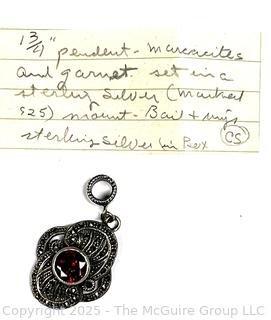 1 3/4" pendent - Marcacites
and garnet set in a
sterling silver (marked
925) mount - Bail + ring
sterling silver in Rex
CS
Copyright 2025 - The McGuire Group LLC